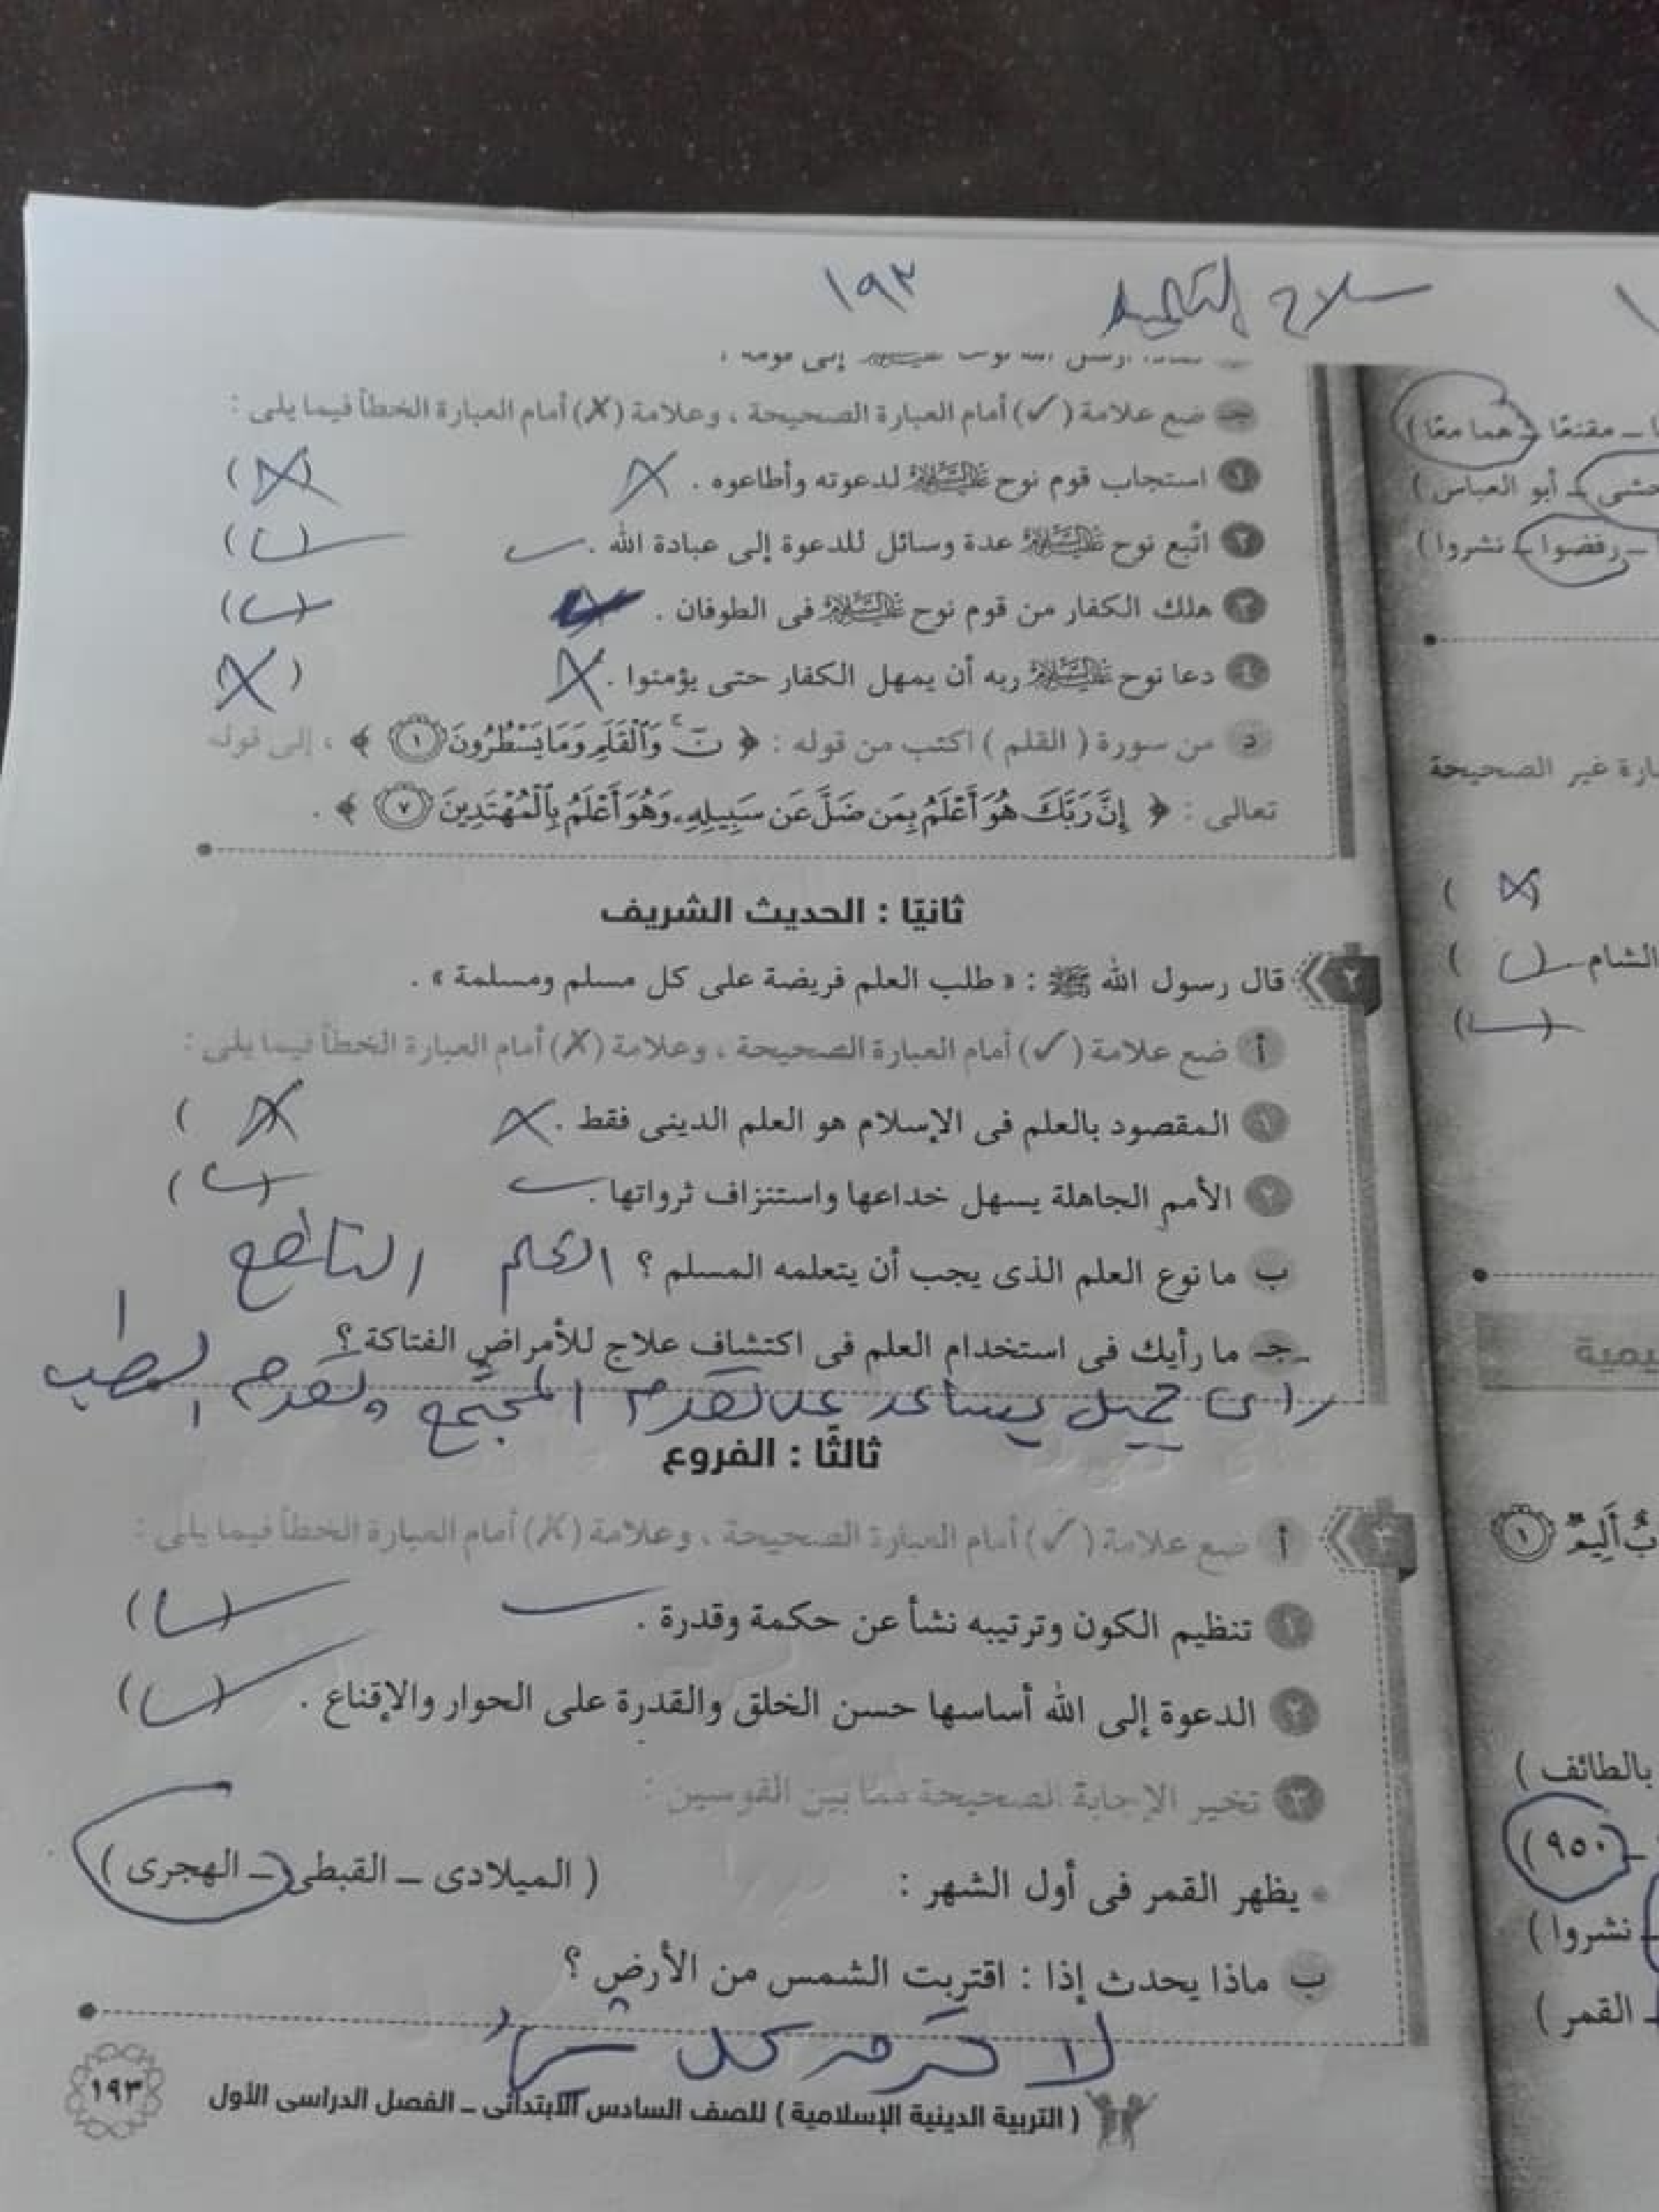 سلاح التلميذ ١٩٣
إلى قومه :
جـ ضع علامة (✓) أمام العبارة الصحيحة ، وعلامة (✗) أمام العبارة الخطأ فيما يلى :
١ استجاب قوم نوح عليه السلام لدعوته وأطاعوه . ✗ (✗)
٢ اتبع نوح عليه السلام عدة وسائل للدعوة إلى عبادة الله . ✓ (✓)
٣ هلك الكفار من قوم نوح عليه السلام فى الطوفان . (✓)
٤ دعا نوح عليه السلام ربه أن يمهل الكفار حتى يؤمنوا . ✗ (✗)
د من سورة ( القلم ) اكتب من قوله : ﴿ نٓ وَٱلْقَلَمِ وَمَا يَسْطُرُونَ ١ ﴾ ، إلى قوله
تعالى : ﴿ إِنَّ رَبَّكَ هُوَ أَعْلَمُ بِمَن ضَلَّ عَن سَبِيلِهِۦ وَهُوَ أَعْلَمُ بِٱلْمُهْتَدِينَ ٧ ﴾ .
ثانيًا : الحديث الشريف
٢ قال رسول الله ﷺ : « طلب العلم فريضة على كل مسلم ومسلمة » .
أ ضع علامة (✓) أمام العبارة الصحيحة ، وعلامة (✗) أمام العبارة الخطأ فيما يلى :
١ المقصود بالعلم فى الإسلام هو العلم الدينى فقط . ✗ (✗)
٢ الأمم الجاهلة يسهل خداعها واستنزاف ثرواتها . ✓ (✓)
ب ما نوع العلم الذى يجب أن يتعلمه المسلم ؟ العلم النافع
جـ ما رأيك فى استخدام العلم فى اكتشاف علاج للأمراض الفتاكة ؟
راى جميل يساعد على تقدم المجتمع وتقدم الطب
ثالثًا : الفروع
٣ أ ضع علامة (✓) أمام العبارة الصحيحة ، وعلامة (✗) أمام العبارة الخطأ فيما يلى :
١ تنظيم الكون وترتيبه نشأ عن حكمة وقدرة . ✓ (✓)
٢ الدعوة إلى الله أساسها حسن الخلق والقدرة على الحوار والإقناع . (✓)
٣ تخير الإجابة الصحيحة مما بين القوسين :
• يظهر القمر فى أول الشهر : ( الميلادى – القبطى – الهجرى )
ب ماذا يحدث إذا : اقتربت الشمس من الأرض ؟
كل
( التربية الدينية الإسلامية ) للصف السادس الابتدائى – الفصل الدراسى الأول
١٩٣
– مقنعًا – هما معًا )
– أبو العباس )
– رفضوا – نشروا )
غير الصحيحة
( ✗ )
الشام ( ✓ )
(✓)
أَلِيمٌ ١
بالطائف )
– ٩٥٠ )
– نشروا )
– القمر )